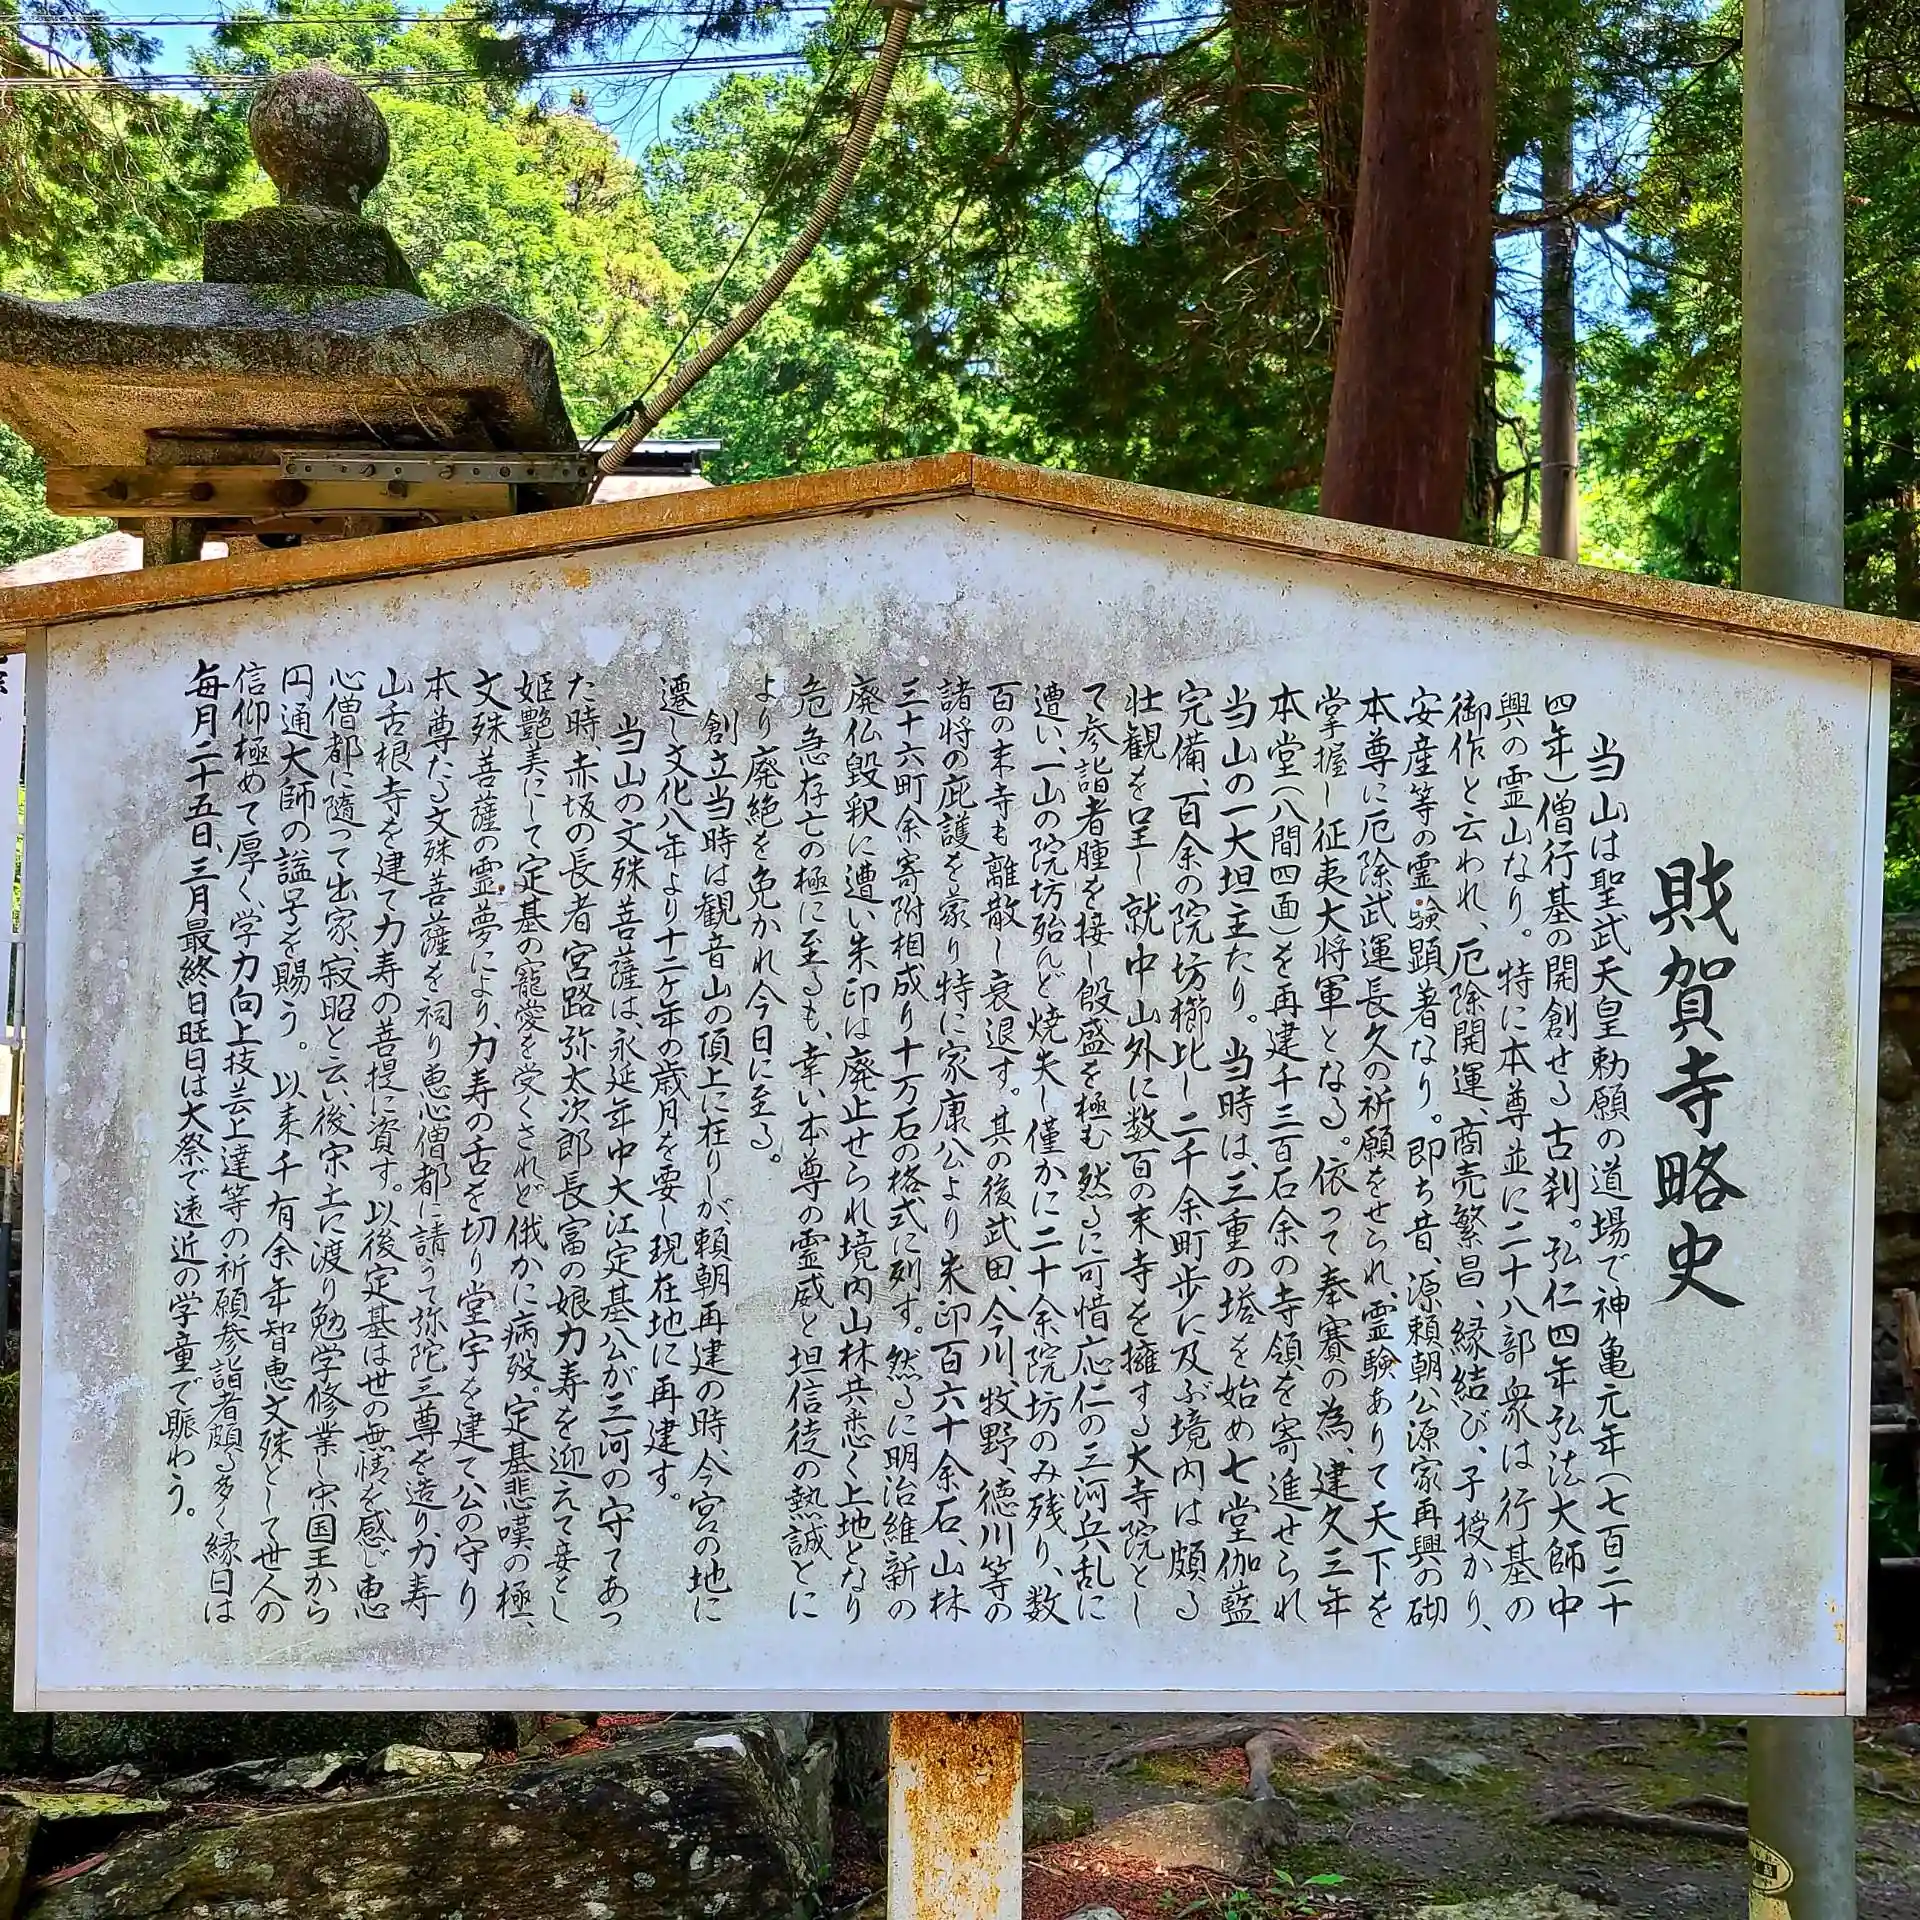 財賀寺略史
当山は聖武天皇勅願の道場で神亀元年(七百二十
四年)僧行基の開創せる古刹。弘仁四年弘法大師中
興の霊山なり。特に本尊並に二十八部衆は行基の
御作と云われ、厄除開運、商売繁昌、縁結び、子授かり、
安産等の霊験顕著なり。即ち昔、源頼朝公源家再興の砌
本尊に厄除武運長久の祈願をせられ、霊験ありて天下を
掌握し征夷大将軍となる。依って奉賽の為、建久三年
本堂(八間四面)を再建千三百石余の寺領を寄進せられ
当山の一大坦主たり。当時は、三重の塔を始め七堂伽藍
完備、百余の院坊櫛比し二千余町歩に及ぶ境内は頗る
壮観を呈し就中山外に数百の末寺を擁する大寺院とし
て参詣者腫を接し殷盛を極む然るに可惜応仁の三河兵乱に
遭い、一山の院坊殆んど焼失し僅かに二十余院坊のみ残り、数
百の末寺も離散し衰退す。其の後武田、今川、牧野、徳川等の
諸将の庇護を蒙り特に家康公より朱印百六十余石、山林
三十六町余寄附相成り十万石の格式に列す。然るに明治維新の
廃仏毀釈に遭い朱印は廃止せられ境内山林共悉く上地となり
危急存亡の極に至るも、幸い本尊の霊威と坦信徒の熱誠とに
より廃絶を免かれ今日に至る。
創立当時は観音山の頂上に在りしが、頼朝再建の時、今宮の地に
遷し文化八年より十二ケ年の歳月を要し現在地に再建す。
当山の文殊菩薩は、永延年中大江定基公が三河の守てあっ
た時、赤坂の長者宮路弥太次郎長富の娘力寿を迎えて妾とし
姫艶美にして定基の寵愛を受くされど俄かに病歿。定基悲嘆の極、
文殊菩薩の霊夢により、力寿の舌を切り堂宇を建て公の守り
本尊たる文殊菩薩を祠り恵心僧都に請うて弥陀三尊を造り、力寿
山舌根寺を建て力寿の菩提に資す。以後定基は世の無情を感じ恵
心僧都に随って出家、寂昭と云い、後宋土に渡り勉学修業し宋国王から
円通大師の諡号を賜う。以来千有余年智恵文殊として世人の
信仰極めて厚く、学力向上技芸上達等の祈願参詣者頗る多く縁日は
毎月二十五日、三月最終日旺日は大祭で遠近の学童で賑わう。